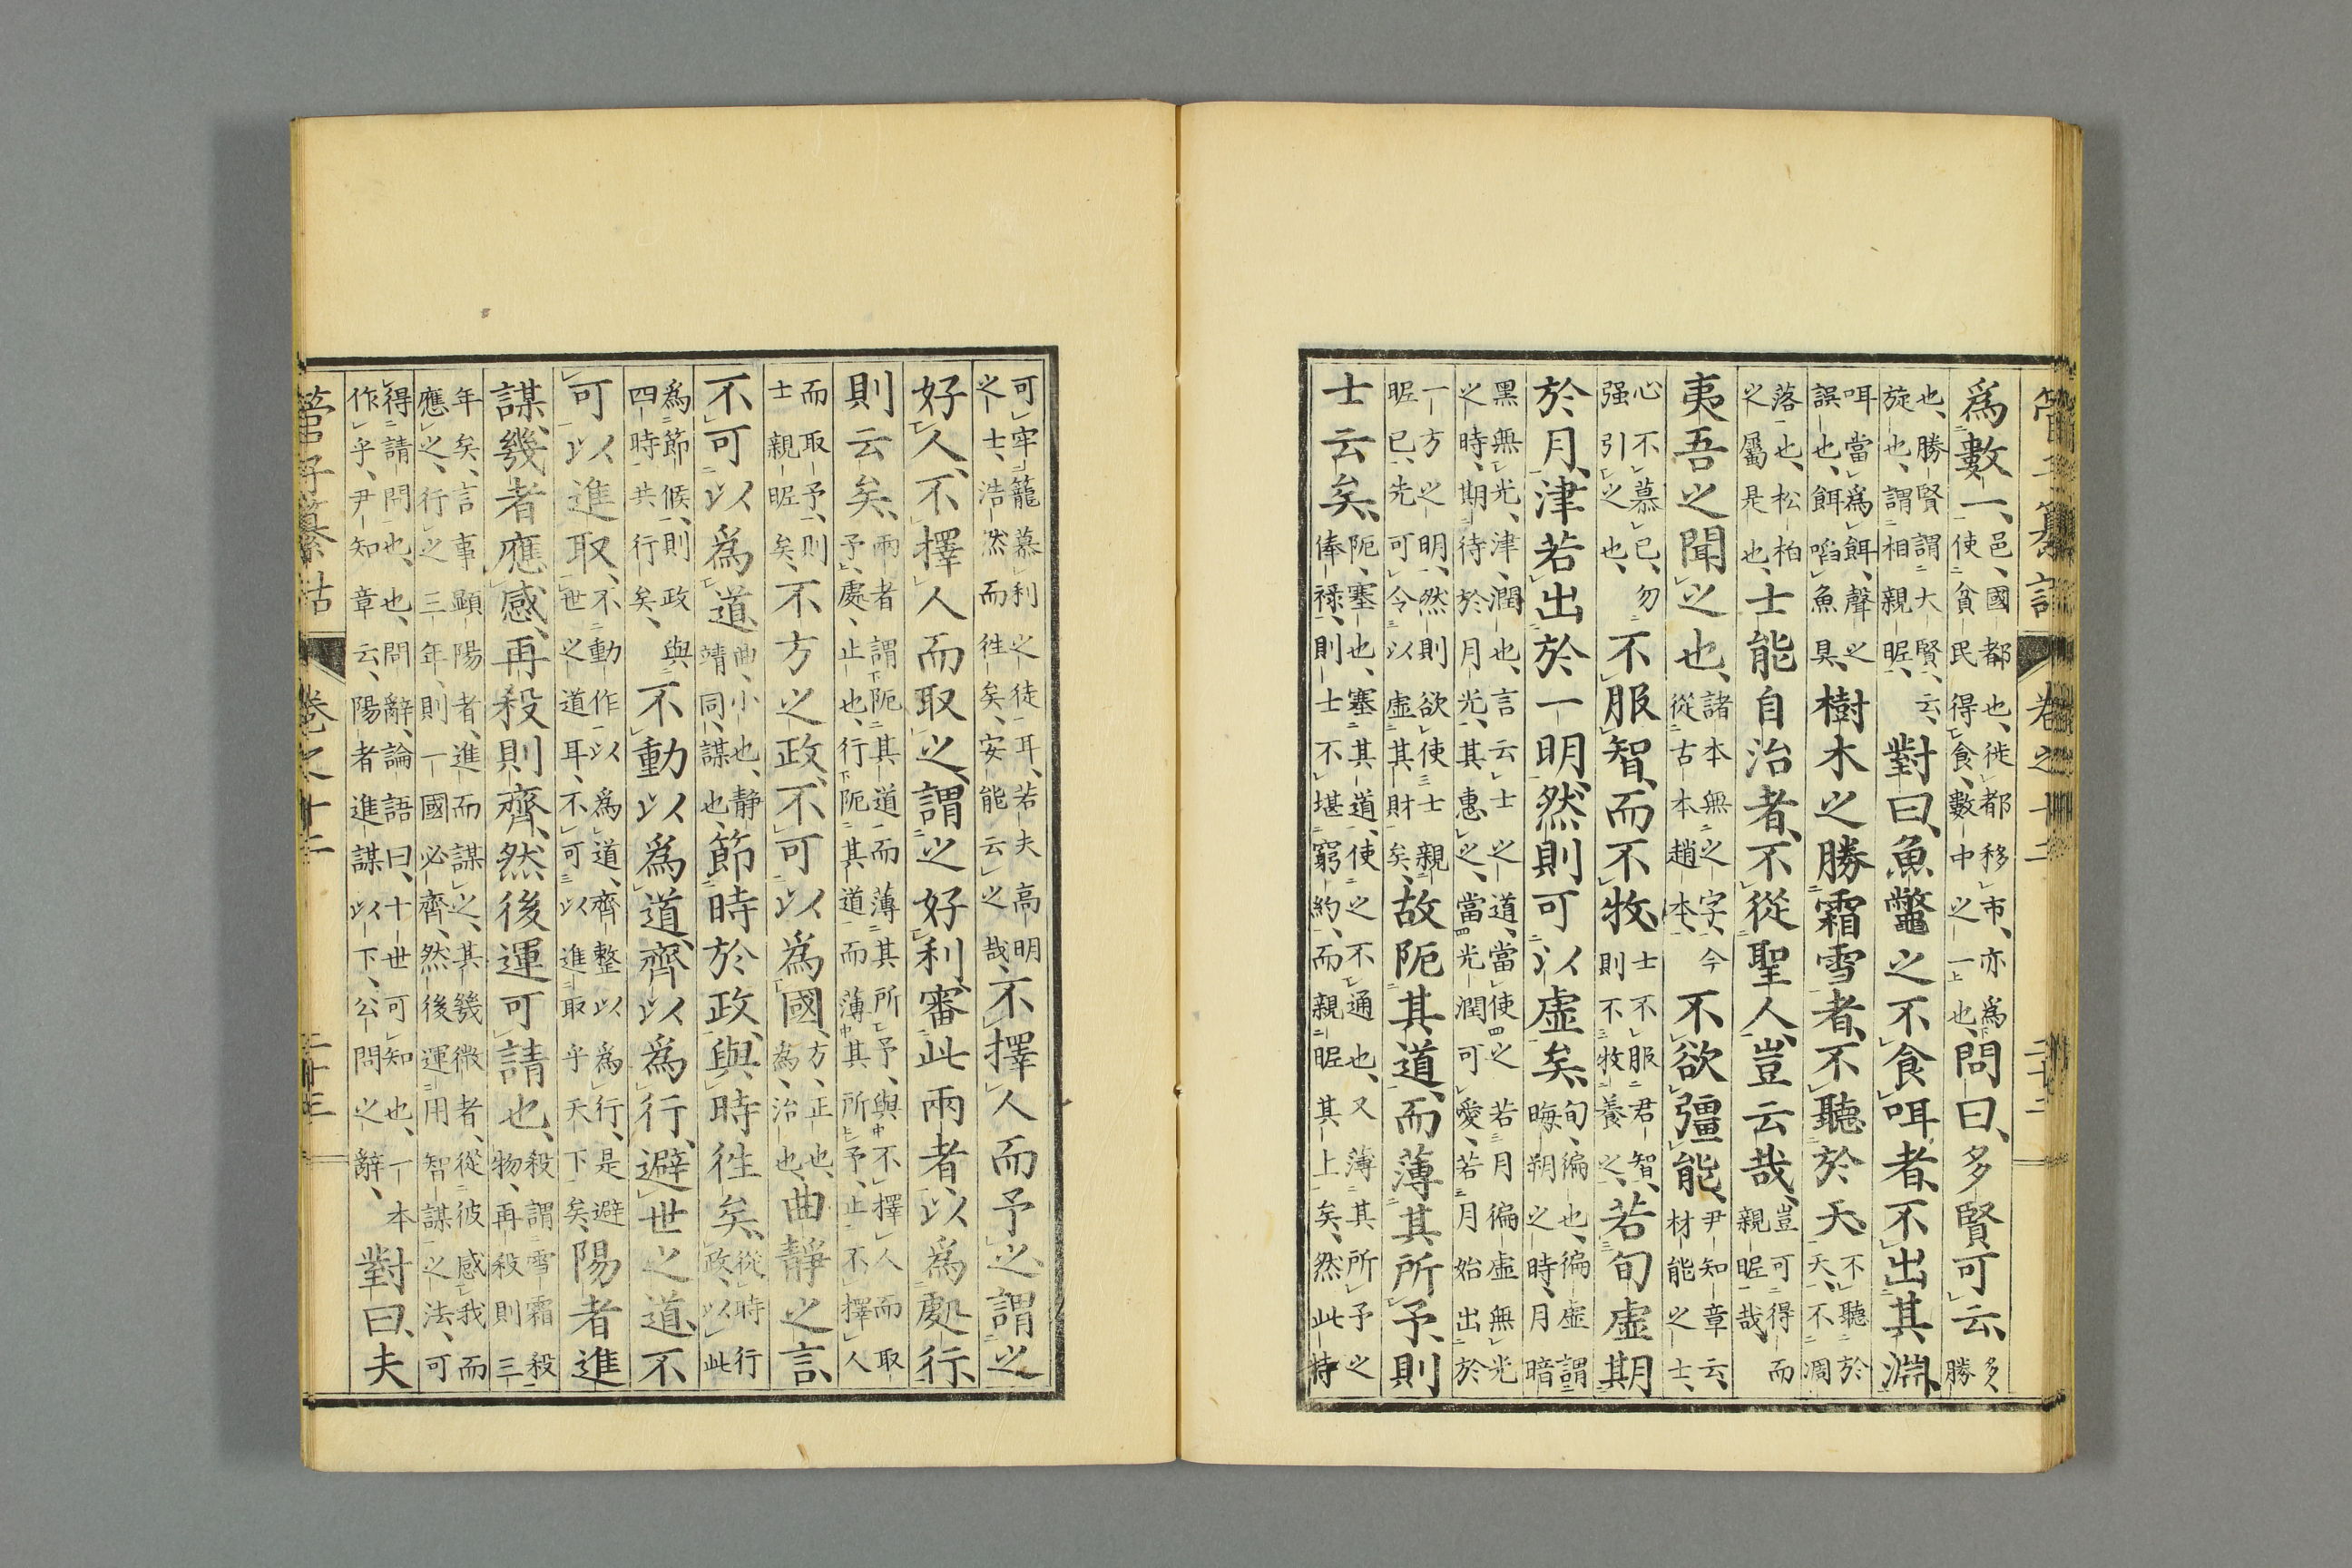 管子纂詁 卷之十二 二十二
爲數一、邑、國都也、徙都移市、亦爲使貧民得食、數中之一也、問曰、多賢可云、多勝
也、勝賢謂大賢、云、旋也、謂相親昵、對曰、魚鼈之不食咡者、不出其淵、
咡當爲餌、聲之誤也、餌啗魚具、樹木之勝霜雪者、不聽於天、不聽於天、不凋
落也、松柏之屬是也、士能自治者、不從聖人、豈云哉、豈可得而親昵哉、
夷吾之聞之也、諸本無之字、今從古本趙本、不欲彊能、尹知章云、材能之士、
心不慕已、勿强引之也、不服智、而不牧、士不服君智、則不牧養之、若旬虛期
於月、津若出於一明、然則可以虛矣、旬、徧也、徧虛謂晦朔之時、月暗
黑無光、津、潤也、言云士之道、當使之若月徧虛無光之時、期待於月光、其惠之、當光潤可愛、若月始出於
一方之明、然則欲使士親昵已、先可令以虛其財矣、故阨其道、而薄其所予、則
士云矣、阨、塞也、塞其道、使之不通也、又薄其所予之俸祿、則士不堪窮約、而親昵其上矣、然此特
可牢籠慕利之徒耳、若夫高明之士、浩然而徃矣、安能云之哉、不擇人而予之、謂之
好人、不擇人而取之、謂之好利、審此兩者、以爲處行、
則云矣、兩者謂阨其道而薄其所予、與不擇人而予、處、止也、行阨其道而薄其所予、止不擇人取
而取予、則士親昵矣、不方之政、不可以爲國、方、正也、爲、治也、曲靜之言、
不可以爲道、曲、小也、靜靖同、謀也、節時於政、與時徃矣、從時行政、以此
爲節候、則政與四時共行矣、不動以爲道、齊以爲行、避世之道、不
可以進取、不動作以爲道、齊整以爲行、是避世之道耳、不可以進取乎天下矣、陽者進
謀、幾者應感、再殺則齊、然後運可請也、殺謂雪霜殺物、再殺則三
年矣、言事顯陽者、進而謀之、其幾微者、從彼感我而應之、行之三年、則一國必齊、然後運用智謀之法、可
得請問也、也、問辭、論語曰、十世可知也、一本作乎、尹知章云、陽者進謀以下、公問之辭、對曰、夫
管子纂詁 卷之十二 二十三